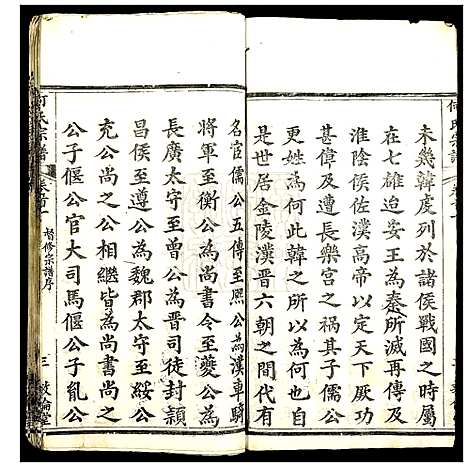 何氏宗譜
未幾韓虔列於諸侯戰國之時屬
在七雄迨安王為秦所滅再傳及
淮陰侯佐漢高帝以定天下厥功
甚偉及遭長樂宮之禍其子儒公
更姓為何此韓之所以為何也自
是世居金陵漢晉六朝之間代有
名宦儒公五傳至熙公為漢車騎
將軍至衡公為尚書令至夔公為
長廣太守至曾公為晉司徒封潁
昌侯至遵公為魏郡太守至綏公
充公尚之公相繼皆為尚書尚之
公子偃公官大司馬偃公子胤公
何氏宗譜
卷首一
督修宗譜序
三
敦倫堂